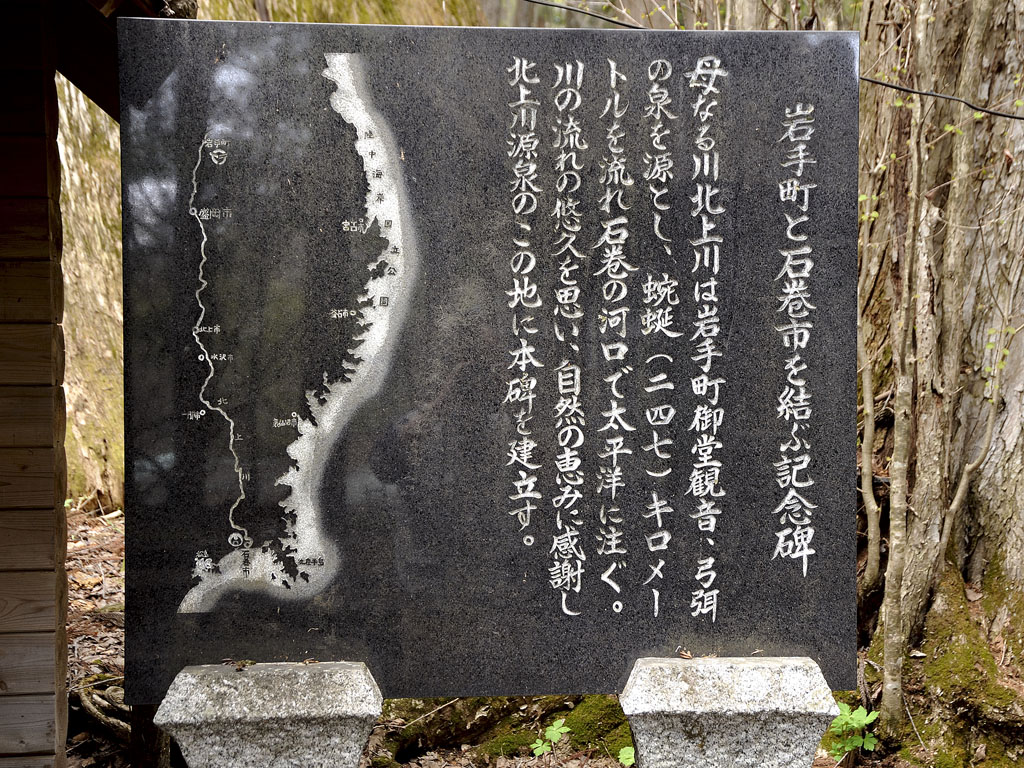 岩手町と石巻市を結ぶ記念碑
母なる川北上川は岩手町御堂観音、弓弭
の泉を源とし、蜿蜒（二四七）キロメー
トルを流れ石巻の河口で太平洋に注ぐ。
川の流れの悠久を思い、自然の恵みに感謝し
北上川源泉のこの地に本碑を建立す。
陸中海岸国立公園
岩手町
盛岡市
宮古市
釜石市
北上市
水沢市
一関市
北上川
石巻市